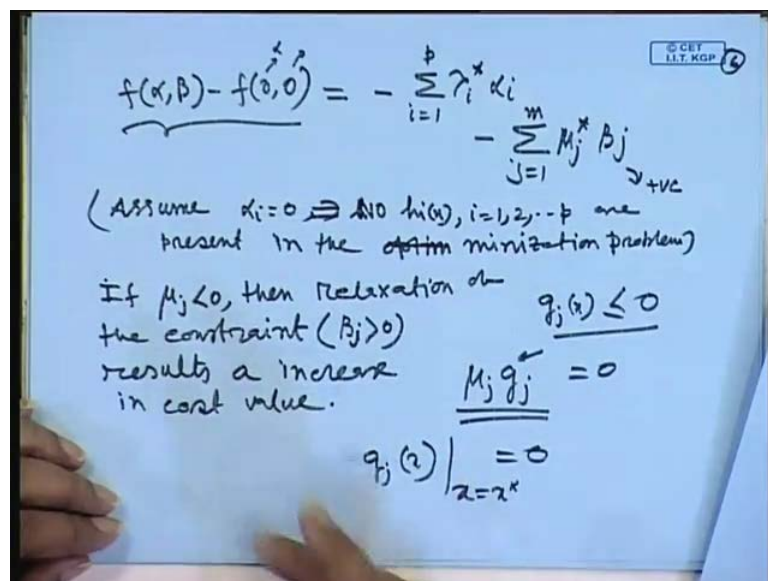 © CET
I.I.T. KGP
6
f(α,β) - f(0,0) = - Σ_{i=1}^{p} λ_i^* α_i
- Σ_{j=1}^{m} μ_j^* β_j
+ve
(Assume α_i=0 ⇒ NO h_i(x), i=1,2,..p are
present in the minization problem)
If μ_j<0, then relaxation on
the constraint (β_j>0)
results a increase
in cost value.
g_j(x) ≤ 0
μ_j g_j = 0
g_j(x)|_{x=x^*} = 0